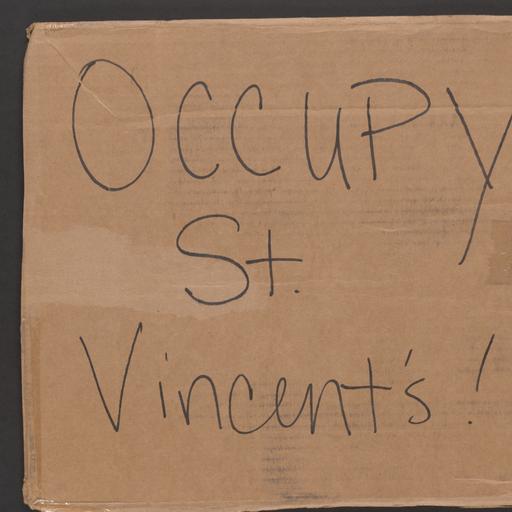 OCCUPY
St.
Vincent's!